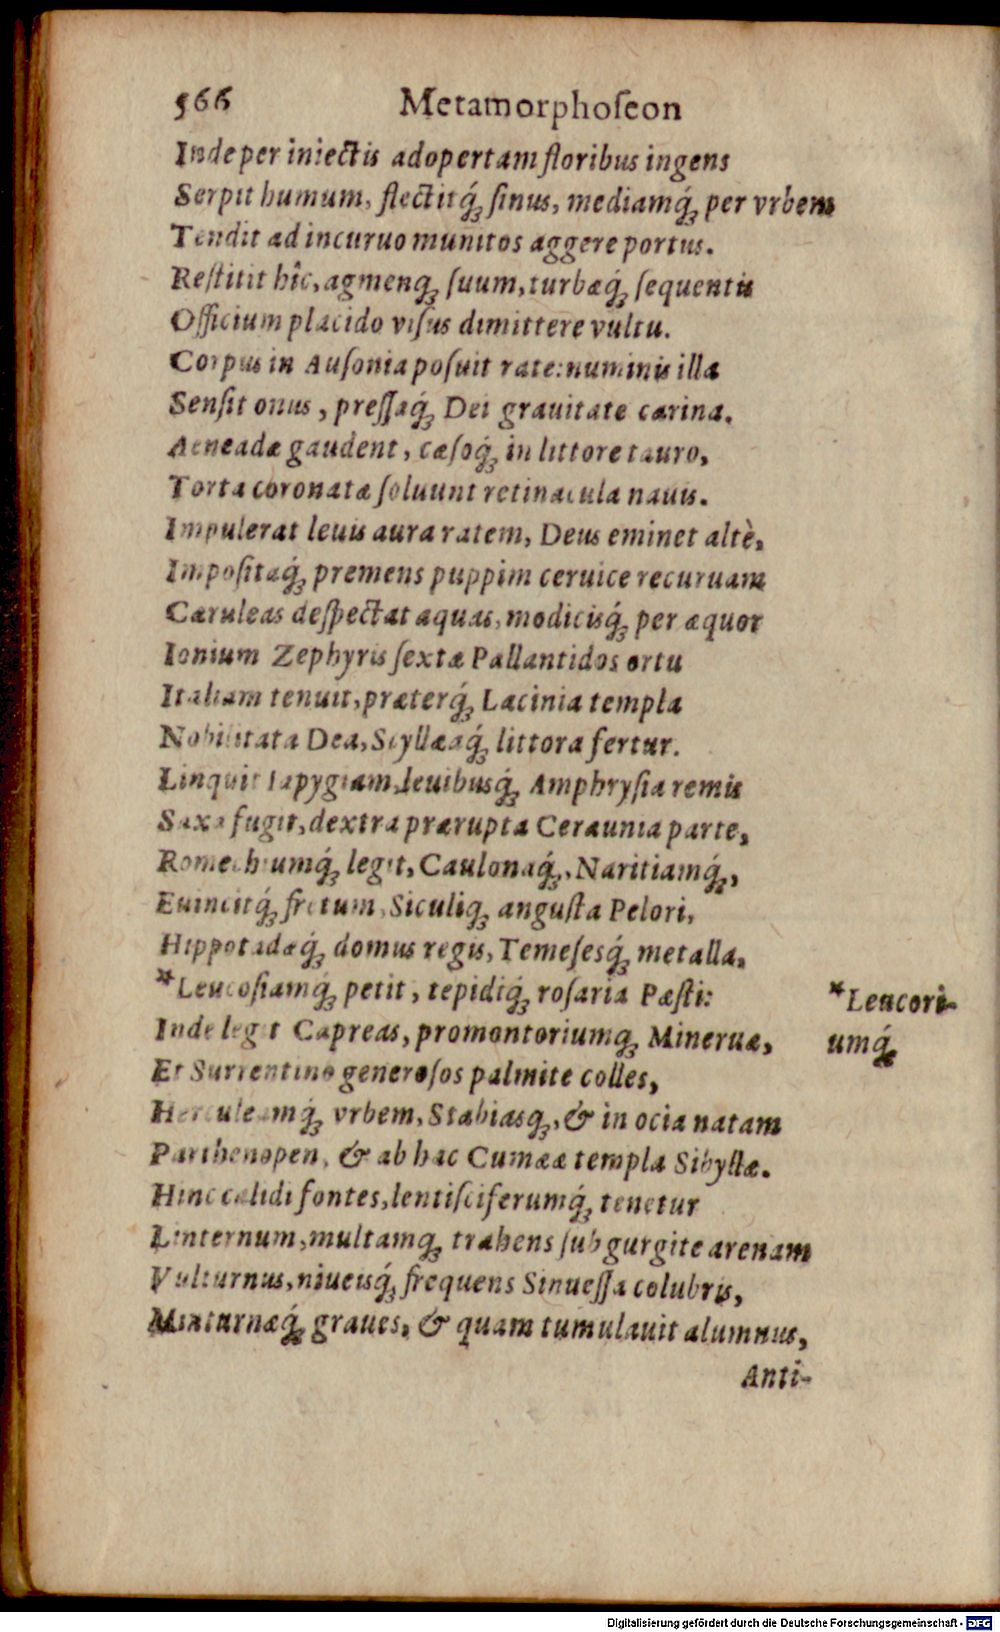 566 Metamorphoſeon
Inde per iniectis adopertam floribus ingens
Serpit humum, flectitq́; ſinus, mediamq́; per vrbem
Tendit ad incuruo munitos aggere portus.
Reſtitit hîc, agmenq; ſuum, turbæq́; ſequentis
Officium placido viſus dimittere vultu.
Corpus in Auſonia poſuit rate: numinis illa
Senſit onus, preſſaq́; Dei grauitate carina.
Aeneadæ gaudent, cæſoq́; in littore tauro,
Torta coronatæ ſoluunt retinacula nauis.
Impulerat leuis aura ratem, Deus eminet altè,
Impoſitaq́; premens puppim ceruice recuruam
Cæruleas deſpectat aquas, modicisq́; per æquor
Ionium Zephyris ſextæ Pallantidos ortu
Italiam tenuit, præterq́; Lacinia templa
Nobilitata Dea, Scyllæaq́; littora fertur.
Linquit Iapygiam, leuibusq́; Amphryſia remis
Saxa fugit, dextra prærupta Ceraunia parte,
Romechiumq́; legit, Caulonaq́;, Naritiamq́;,
Euincitq́; fretum, Siculiq; anguſta Pelori,
Hippotadæq́; domus regis, Temeſesq́; metalla,
*Leucoſiamq́; petit, tepidiq́; roſaria Pæſti:
*Leucori-
umq́;
Inde legit Capreas, promontoriumq; Mineruæ,
Et Surrentino generoſos palmite colles,
Herculeamq́; vrbem, Stabiasq;, & in ocia natam
Parthenopen, & ab hac Cumææ templa Sibyllæ.
Hinc calidi fontes, lentiſciferumq́; tenetur
Linternum, multamq; trahens ſub gurgite arenam
Vulturnus, niueisq́; frequens Sinueſſa colubris,
Minturnæq́; graues, & quam tumulauit alumnus,
Anti-
Digitalisierung gefördert durch die Deutsche Forschungsgemeinschaft - DFG